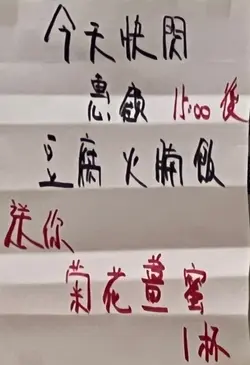 今天快閃
惠顧 15:00後
豆腐火腩飯
送你
菊花薑蜜
1杯